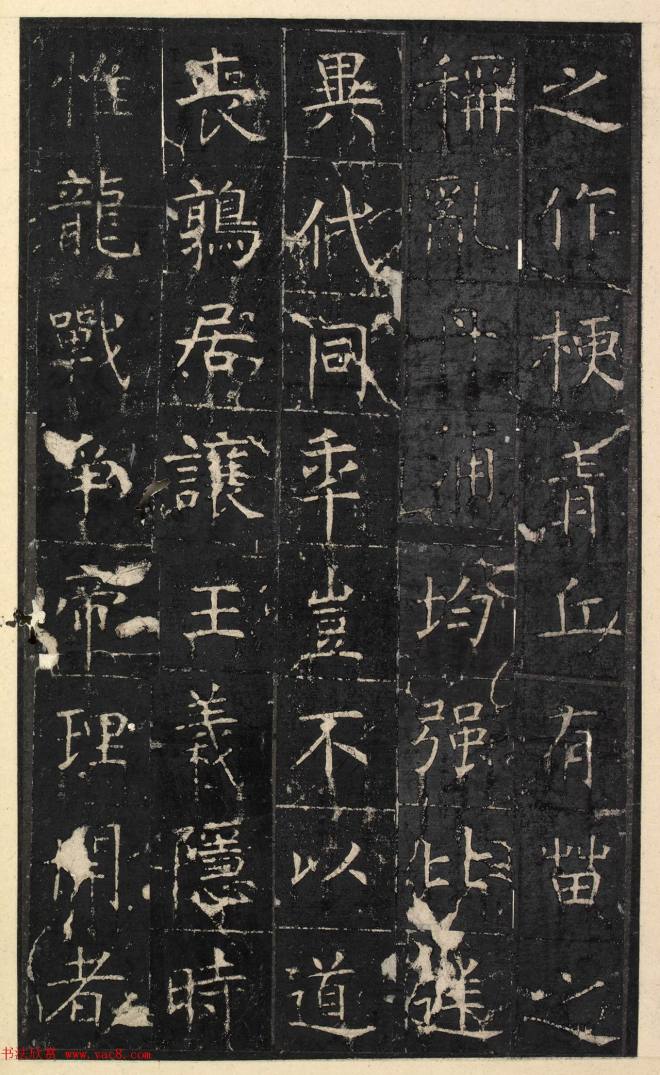 之作梗青丘有苗之
稱亂丹浦均强比
異代同秊豈不以道
喪鶉居讓王義隱時
惟龍戰爭帝理開者
书法欣赏 www.yac8.com